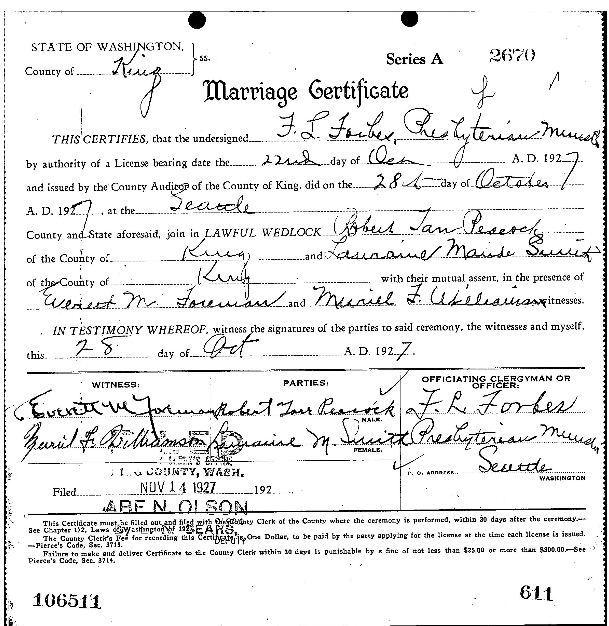 STATE OF WASHINGTON,
County of King ss.
Series A 2670
Marriage Certificate
THIS CERTIFIES, that the undersigned F. L. Forbes, Presbyterian Minister
by authority of a License bearing date the 22nd day of Oct A. D. 1927
and issued by the County Auditor of the County of King, did on the 28th day of October
A. D. 1927, at the Seattle
County and State aforesaid, join in LAWFUL WEDLOCK Robert Tarr Peacock
of the County of King and Lauraine Maude Smith
of the County of King with their mutual assent, in the presence of
Everett M. Foreman and Muriel F. Williamson witnesses.
IN TESTIMONY WHEREOF, witness the signatures of the parties to said ceremony, the witnesses and myself,
this 28 day of Oct A. D. 1927.
WITNESS: PARTIES: OFFICIATING CLERGYMAN OR OFFICER:
Everett M Foreman Robert Tarr Peacock F. L. Forbes
MALE.
Muriel F. Williamson Lauraine M. Smith Presbyterian Minister
FEMALE.
COUNTY, WASH. P. O. ADDRESS Seattle
WASHINGTON
Filed NOV 14 1927 192
ABE N. OLSON
This Certificate must be filled out and filed with the County Clerk of the County where the ceremony is performed, within 30 days after the ceremony.—
See Chapter 172, Laws of Washington of
SEARS,
The County Clerk's Fee for recording this Certificate is One Dollar, to be paid by the party applying for the license at the time each license is issued.
—Pierce's Code, Sec. 3715.
DEPUTY
Failure to make and deliver Certificate to the County Clerk within 30 days is punishable by a fine of not less than $25.00 or more than $300.00.—See
Pierce's Code, Sec. 3714.
106511 611